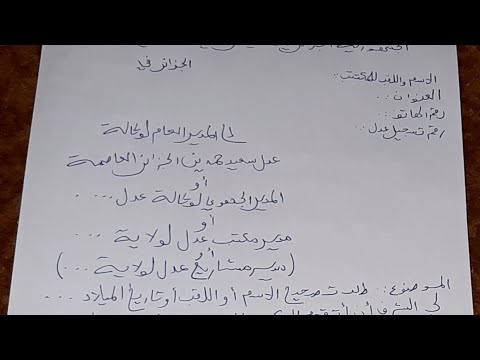 الجزائر في
الاسم واللقب للمكتتب:..
العنوان:..
رقم الهاتف:..
رقم تسجيل عدل:..
الى المدير العام لوكالة
عدل سعيد حمدين الجزائر العاصمة
أو
المدير الجهوي لوكالة عدل ....
أو
مدير مكتب عدل لولاية ...
أو
(مدير مشاريع عدل لولاية ...)
الموضوع: طلب تصحيح الاسم أو اللقب أو تاريخ الميلاد ...
لي الشرف أن أتقدم